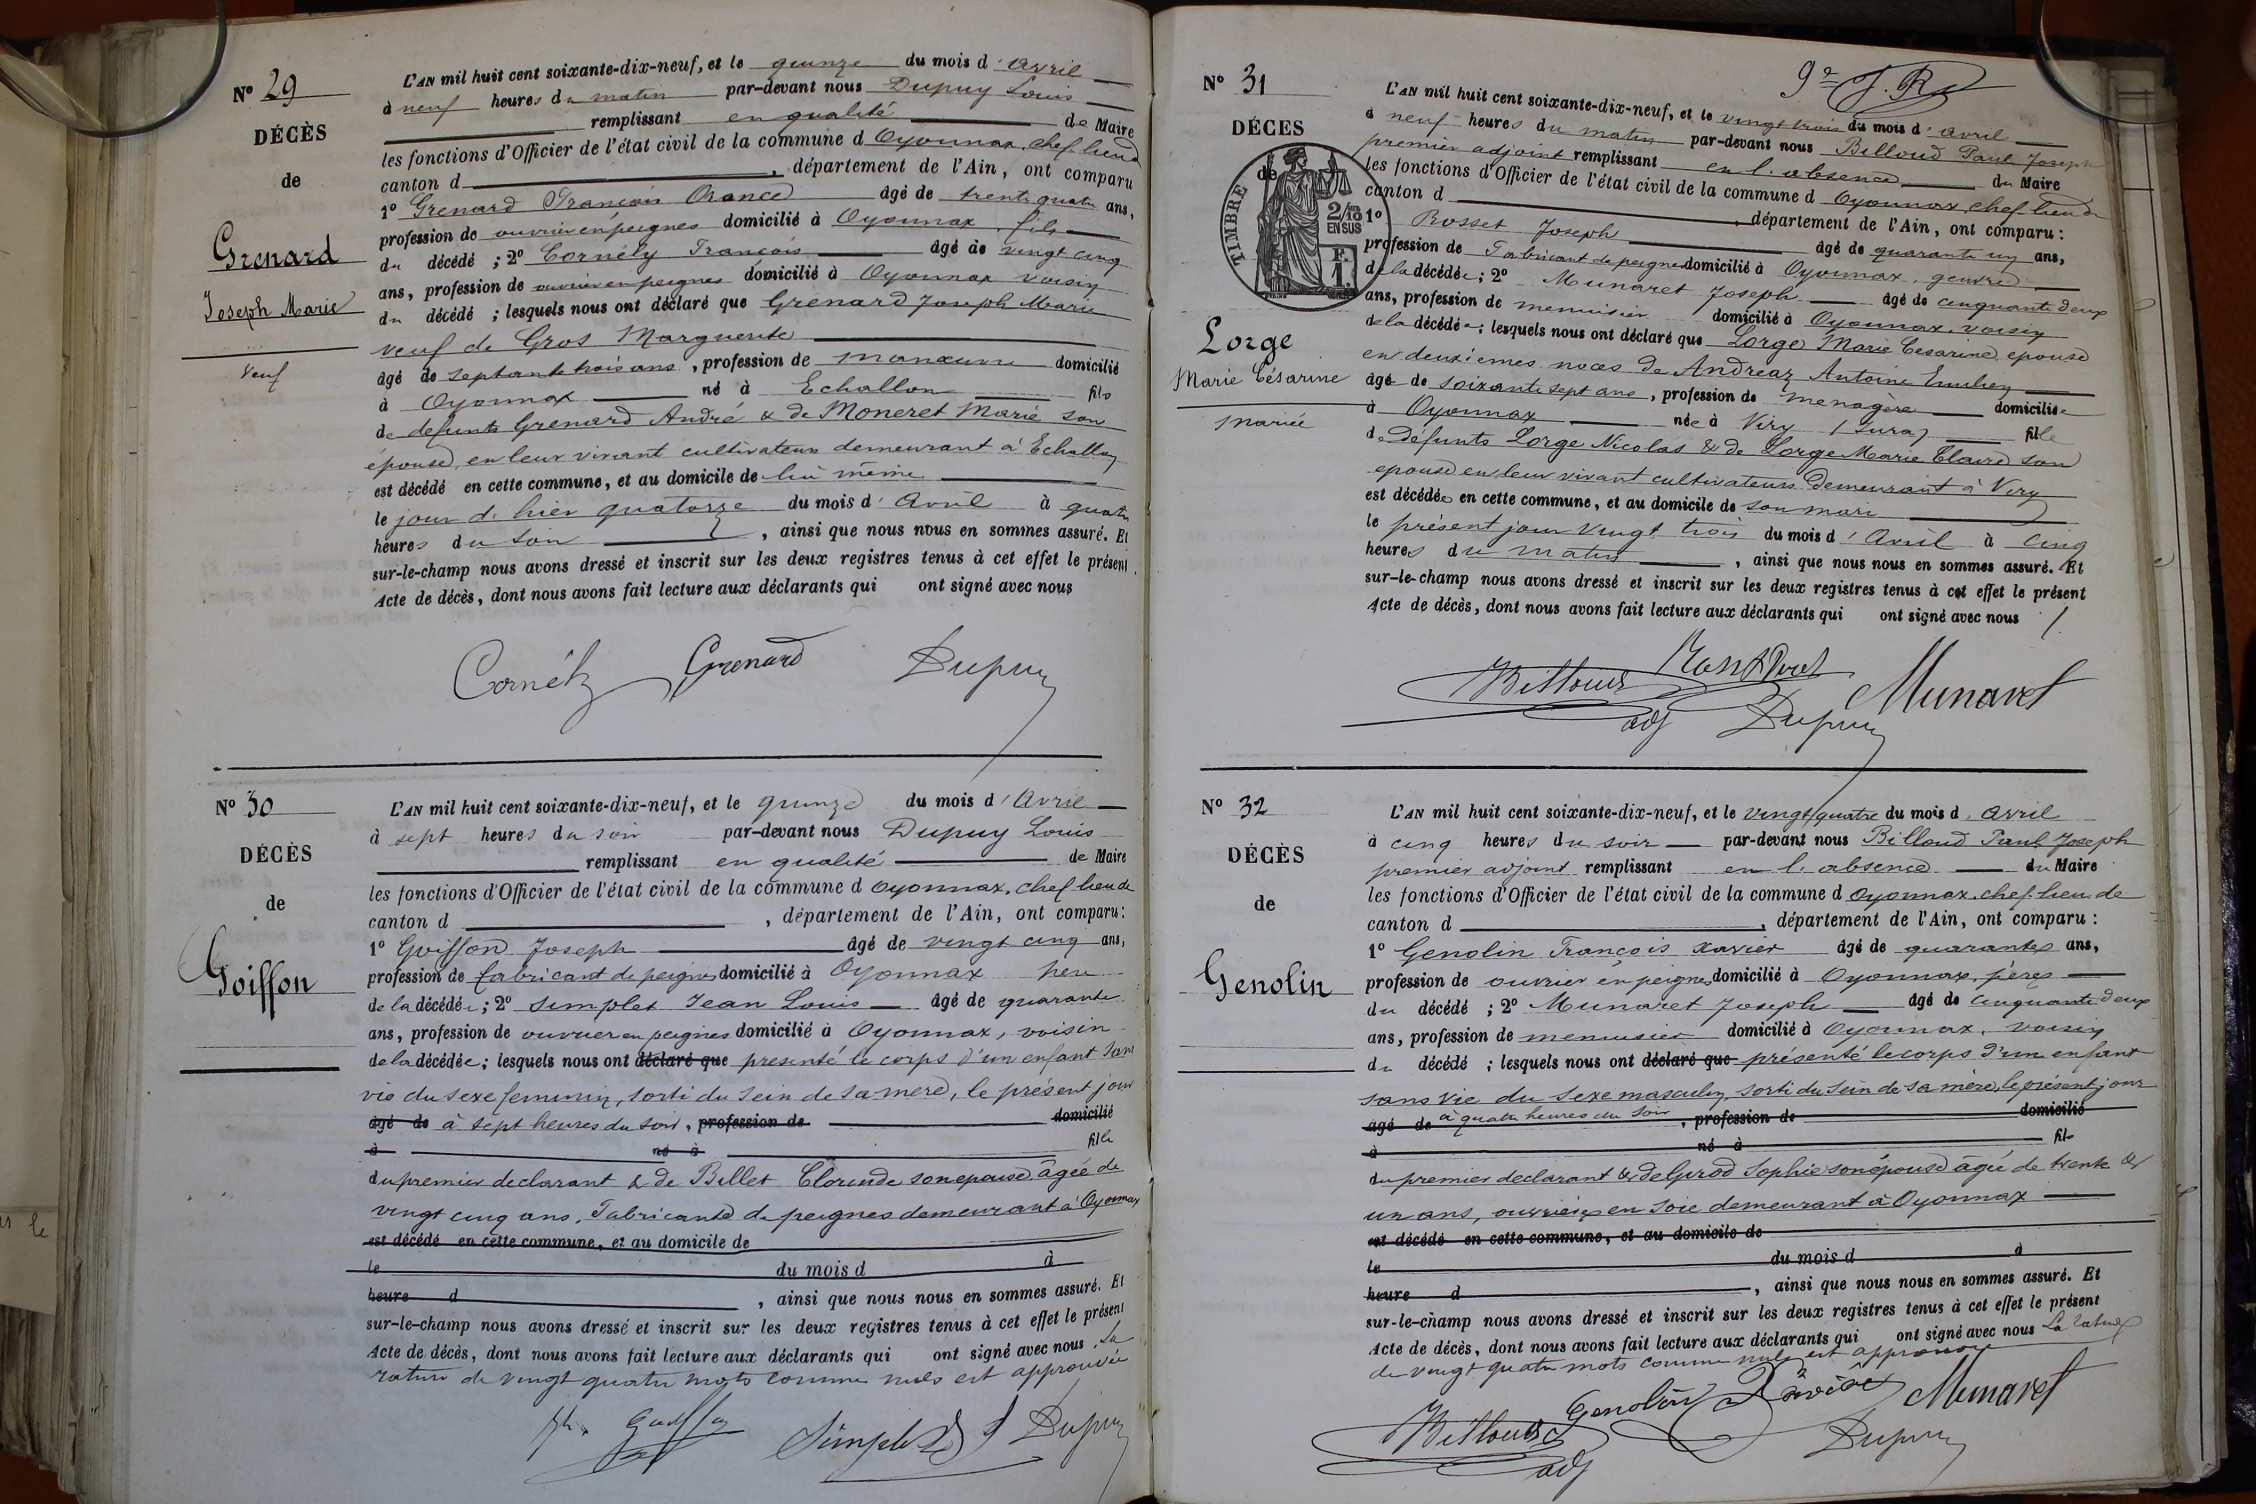 N° 29
DÉCÈS
de
Grenard
Joseph Marie
Veuf
L'AN mil huit cent soixante-dix-neuf, et le quinze du mois d'avril
à neuf heures du matin par-devant nous Dupuy Louis
remplissant en qualité de Maire
les fonctions d'Officier de l'état civil de la commune d Oyonnax, chef lieu de
canton d , département de l'Ain, ont comparu
1° Grenard François Orance âgé de trente quatre ans,
profession de ouvrier en peignes domicilié à Oyonnax, fils
du décédé ; 2° Cornély François âgé de vingt cinq
ans, profession de ouvrier en peignes domicilié à Oyonnax voisin
du décédé ; lesquels nous ont déclaré que Grenard Joseph Marie
veuf de Gros Marguerite
âgé de septante trois ans, profession de manœuvre domicilié
à Oyonnax né à Echallon fils
de defunts Grenard André & de Moneret Marie son
épouse, en leur vivant cultivateurs demeurant à Echallon
est décédé en cette commune, et au domicile de lui même
le jour d'hier quatorze du mois d'Avril à quatre
heures du soir , ainsi que nous nous en sommes assuré. Et
sur-le-champ nous avons dressé et inscrit sur les deux registres tenus à cet effet le présent
Acte de décès, dont nous avons fait lecture aux déclarants qui ont signé avec nous
Cornély Grenard Dupuy
N° 30
DÉCÈS
de
Goiffon
L'AN mil huit cent soixante-dix-neuf, et le quinze du mois d'Avril
à sept heures du soir par-devant nous Dupuy Louis
remplissant en qualité de Maire
les fonctions d'Officier de l'état civil de la commune d Oyonnax, chef lieu de
canton d , département de l'Ain, ont comparu :
1° Goiffon Joseph âgé de vingt cinq ans,
profession de fabricant de peignes domicilié à Oyonnax père
de la décédée ; 2° Simplet Jean Louis âgé de quarante
ans, profession de ouvrier en peignes domicilié à Oyonnax, voisin
de la décédée ; lesquels nous ont déclaré que presenté le corps d'un enfant sans
vie du sexe feminin, sorti du sein de sa mère, le présent jour
âgé de à sept heures du soir, profession de domicilié
à né à fille
du premier declarant & de Billet Clorinde son epouse âgée de
vingt cinq ans, Fabricante de peignes demeurant à Oyonnax
est décédé en cette commune, et au domicile de
le du mois d à
heure d , ainsi que nous nous en sommes assuré. Et
sur-le-champ nous avons dressé et inscrit sur les deux registres tenus à cet effet le présent
Acte de décès, dont nous avons fait lecture aux déclarants qui ont signé avec nous. La
rature de vingt quatre mots comme nuls est approuvée
Goiffon Simplet Dupuy
N° 31
DÉCES
de
TIMBRE
2/10
EN SUS
F.
1.
Lorge
Marie Césarine
mariée
L'AN mil huit cent soixante-dix-neuf, et le vingt trois du mois d'avril
à neuf heures du matin par-devant nous Billoud Paul Joseph
premier adjoint remplissant en l'absence du Maire
les fonctions d'Officier de l'état civil de la commune d Oyonnax, chef lieu de
canton d , département de l'Ain, ont comparu :
1° Rosset Joseph âgé de quarante un ans,
profession de Fabricant de peignes domicilié à Oyonnax, gendre
de la décédée ; 2° Munaret Joseph âgé de cinquante deux
ans, profession de menuisier domicilié à Oyonnax, voisin
de la décédée ; lesquels nous ont déclaré que Lorge Marie Cesarine, epouse
en deuxièmes noces de Andreaz Antoine Emulien
âgé de soixante sept ans, profession de menagère domiciliée
à Oyonnax née à Viry (Jura) fille
de Défunts Lorge Nicolas & de Lorge Marie Claire son
epouse en leur vivant cultivateurs demeurant à Viry
est décédée en cette commune, et au domicile de son mari
le présent jour vingt trois du mois d'Avril à cinq
heures du matin , ainsi que nous nous en sommes assuré. Et
sur-le-champ nous avons dressé et inscrit sur les deux registres tenus à cet effet le présent
Acte de décès, dont nous avons fait lecture aux déclarants qui ont signé avec nous
Billoud Munaret
adj Dupuy
N° 32
DÉCÈS
de
Genolin
L'AN mil huit cent soixante-dix-neuf, et le vingt quatre du mois d avril
à cinq heures du soir par-devant nous Billoud Paul Joseph
premier adjoint remplissant en l'absence du Maire
les fonctions d'Officier de l'état civil de la commune d Oyonnax, chef lieu de
canton d , département de l'Ain, ont comparu :
1° Genolin François Xavier âgé de quarante ans,
profession de ouvrier en peignes domicilié à Oyonnax, père
du décédé ; 2° Munaret Joseph âgé de cinquante deux
ans, profession de menuisier domicilié à Oyonnax, voisin
du décédé ; lesquels nous ont déclaré que présenté le corps d'un enfant
sans vie du sexe masculin, sorti du sein de sa mère, le présent jour
âgé de à quatre heures du soir, profession de domicilié
à né à fils
du premier declarant & de Girod Sophie son épouse âgée de trente &
un ans, ouvrière en soie demeurant à Oyonnax
est décédé en cette commune, et au domicile de
le du mois d à
heure d , ainsi que nous nous en sommes assuré. Et
sur-le-champ nous avons dressé et inscrit sur les deux registres tenus à cet effet le présent
Acte de décès, dont nous avons fait lecture aux déclarants qui ont signé avec nous La rature
de vingt quatre mots comme nuls est approuvée
Genolin Xavier Munaret
Billoud Dupuy
adj